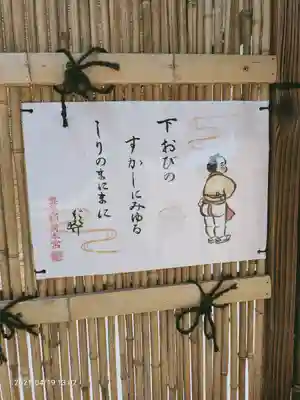 下おびの
すかしにみゆる
しりのまにまに
2021/04/19 13:07